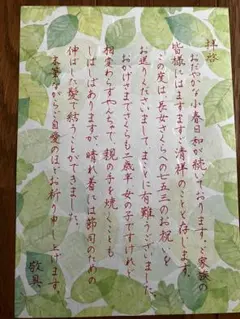 拝啓
おだやかな小春日和が続いております。ご家族の
皆様にはますますご清祥のことと存じます。
この度は、長女さくらへの七五三のお祝いを
お送りくださいまして、まことに有難うございました。
おかげさまでさくらも二歳半、女の子ですけれど
相変わらずやんちゃで、親の手を焼くことも
しばしばありますが、晴れ着には節句のための
伸ばした髪で結うことができました。
末筆ながらご自愛のほどお祈り申し上げます。
敬具